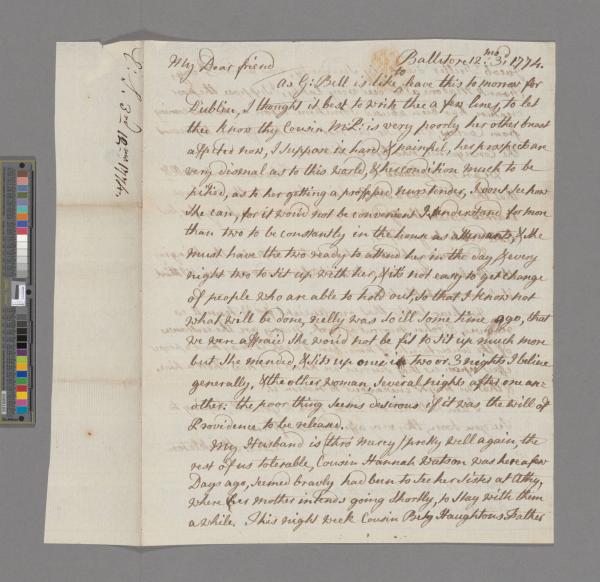 My Dear friend Ballitore 12.mo 3d 1774.
as G: Bell is like to leave this to morrow for
Dublin, I thought it best to write thee a few lines, to let
thee know thy Cousin M:L: is very poorly her other breast
affected now, I suppose is hard & painful, her prospects are
very dismal as to this world, & her condition much to be
pitied, as to her getting a nurstender, I dont see how
She can, for it would not be convenient I understand for more
than two to be constantly in the house as attendants, & She
must have the two ready to attend her in the day, & every
night two to Sit up with her, & its not easy to get change
of people who are able to hold out, so that I know not
what will be done, nelly was so ill some time ago, that
we were affraid She would not be fit to Sit up much more
but She mended, & Sits up once in two or 3 nights I believe
generally, & the other woman Several nights after one an-
other: the poor thing Seems desirous if it was the will of
Providence to be released.
My Husband is thro' mercy pretty well again, the
rest of us tolerable, Cousin Hannah Watson was here a few
Days ago, Seemed bravly had been to See her Sister at Athy,
where her mother intends going Shortly, to Stay with them
a while. This night week Cousin Haughtons Father
3rd 12 mo 1774.